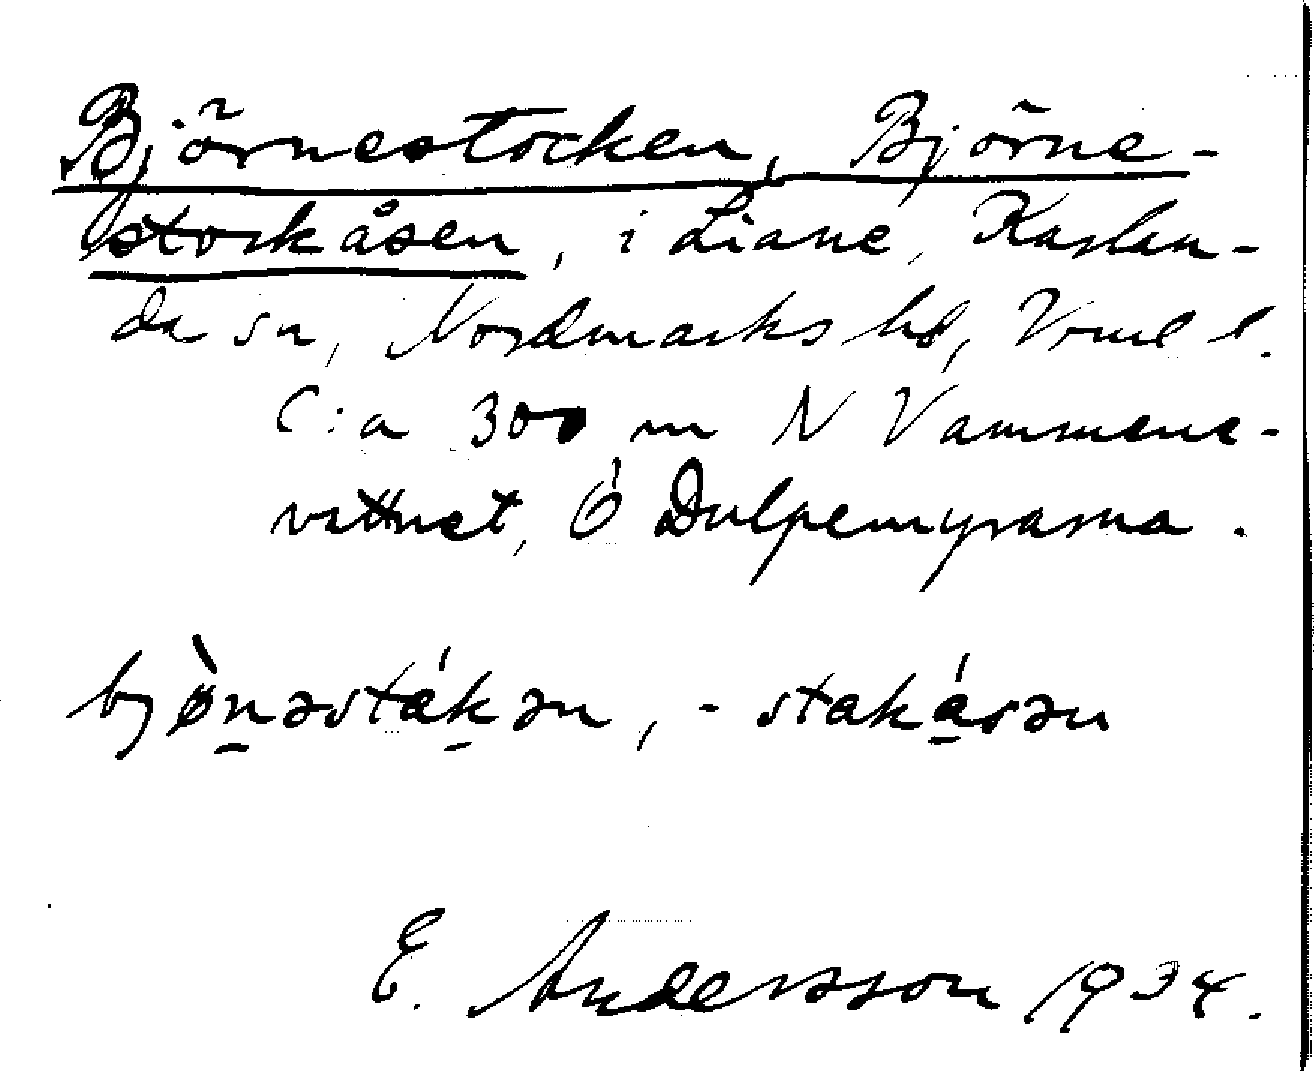 Björnestocken, Björne-
stockåsen, i Liane, Karlan-
da sn, Nordmarks hd, Vrml l.
C:a 300 m N Vammene-
vattnet, Ö Dulpemyrarna.
bjø̀nəstákən, -stakásən
E. Andersson 1934.